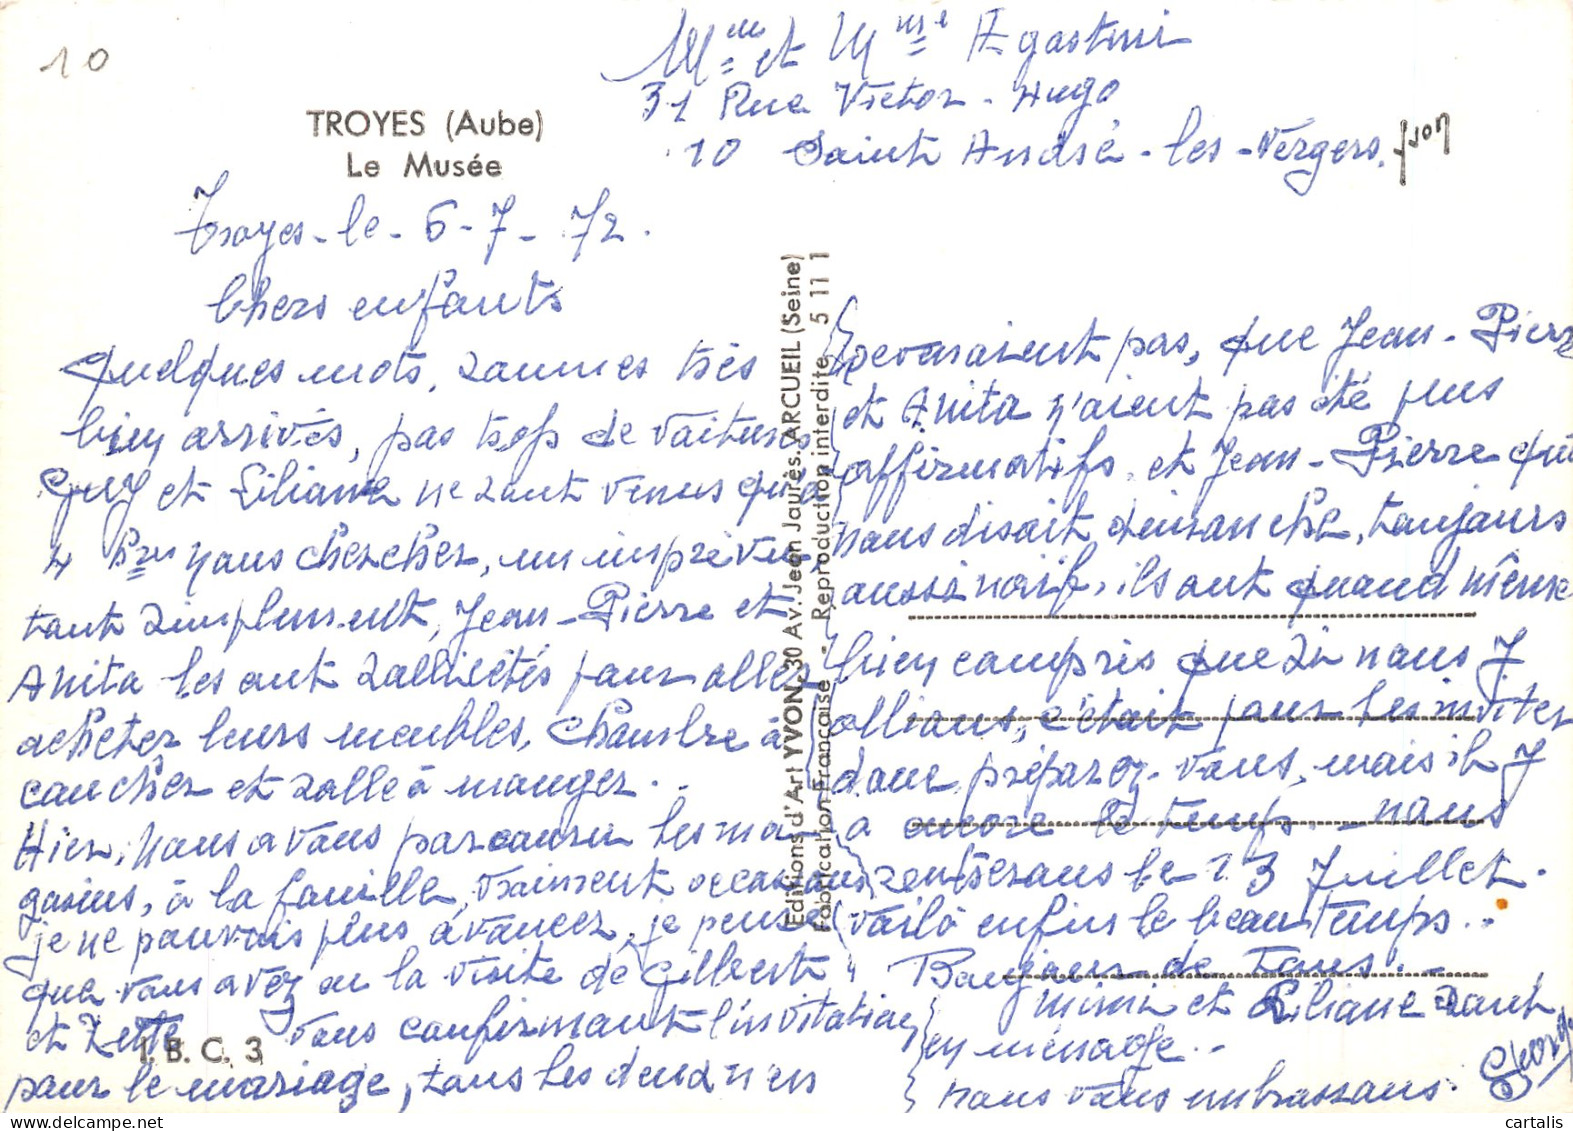 10
Mr et Mme Agostini
31 Rue Victor-Hugo
10 Saint André-les-Vergers.
TROYES (Aube)
Le Musée
Troyes-le-6-7-72.
Chers enfants
quelques mots, sommes très
bien arrivés, pas trop de voitures
Guy et Liliane ne sont venus qu'à
4 hres nous chercher, un imprévu,
tout simplement, Jean-Pierre et
Anita les ont sollicités pour aller
acheter leurs meubles, chambre à
coucher et salle à manger.
Hier, nous avons parcouru les ma
gasins, à la famille, vraiment occasions
je ne pouvais plus avancer, je pense
que vous avez eu la visite de Gilbert
et Zette vous confirmant l'invitation
pour le mariage, tous les deux n'en
I. B. C. 3
Editions d'Art YVON, 30 Av. Jean Jaurès. ARCUEIL (Seine)
Fabrication Française - Reproduction interdite 5 11 1
revenaient pas, que Jean-Pierre
et Anita n'aient pas été plus
affirmatifs, et Jean-Pierre qui
nous disait dimanche, toujours
aussi naïf, ils ont quand même
bien compris que si nous y
allions, c'était pour les inviter
donc préparez-vous, mais il y
a encore le temps. - nous
rentrerons le 13 Juillet.
voilà enfin le beau temps..
Bonjour de Tous. -
Mimi et Liliane sont
en ménage. -
nous vous embrassons.
CPCartalis.com